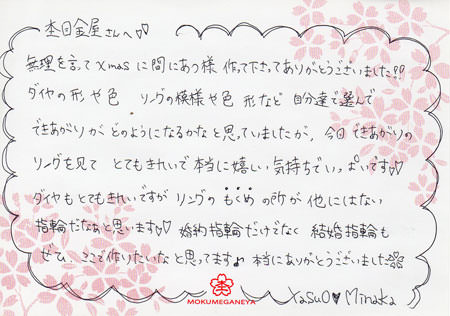 杢目金屋さんへ♡♡
無理を言ってXmasに間にあう様 作って下さってありがとうございました!!
ダイヤの形や色 リングの模様や色 形など 自分達で選んで
できあがりが、どのようになるかなと思っていましたが、今日 できあがりの
リングを見て とてもきれいで本当に嬉しい気持ちでいっぱいです♡♡
ダイヤもとてもきれいですが リングの もくめ の所が 他にはない
指輪だなぁと思います♡♡ 婚約指輪だけでなく 結婚指輪も
ぜひ、ここで作りたいなと思ってます♪ 本当にありがとうございました
MOKUMEGANEYA
Yasuo♥Minaka